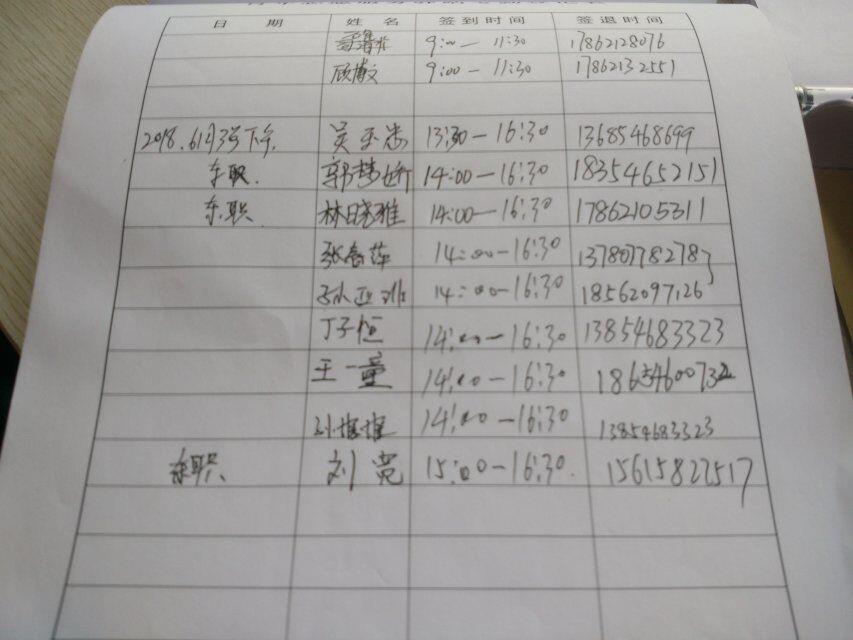 日 期 姓 名 签到时间 签退时间
9:00-11:30 17862128076
顾博文 9:00-11:30 17862132551
2018.6月3号下午 吴玉忠 13:30-16:30 13685468699
东职. 郭梦娇 14:00-16:30 18354652151
东职 林晓雅 14:00-16:30 17862105311
张春萍 14:00-16:30 13780778278
孙亚 14:00-16:30 18562097126
丁子恒 14:00-16:30 13854683323
王一童 14:00-16:30
孙 14:00-16:30 13854683323
东职 刘莹 15:00-16:30. 15615822517